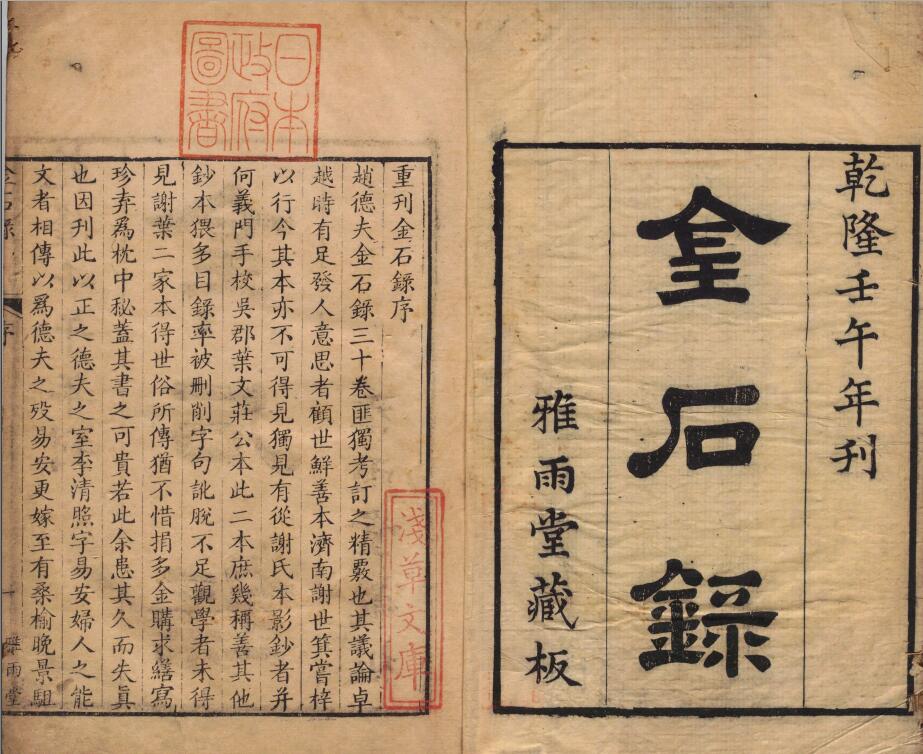 乾隆壬午年刊
金石錄
雅雨堂藏板
日本
政府
圖書
重刊金石錄序
趙德夫金石錄三十卷匪獨考訂之精覈也其議論卓
越時有足發人意思者顧世鮮善本濟南謝世箕嘗梓
以行今其本亦不可得見獨見有從謝氏本影鈔者并
何義門手校吳郡葉文莊公本此二本庶幾稱善其他
鈔本猥多目錄率被刪削字句訛脫不足觀學者未得
見謝葉二家本得世俗所傳猶不惜捐多金購求繕寫
珍弆爲枕中秘蓋其書之可貴若此余患其久而失眞
也因刊此以正之德夫之室李清照字易安婦人之能
文者相傳以爲德夫之歿易安更嫁至有桑榆晚景駔
淺草文庫
金石錄
序
一
雅雨堂